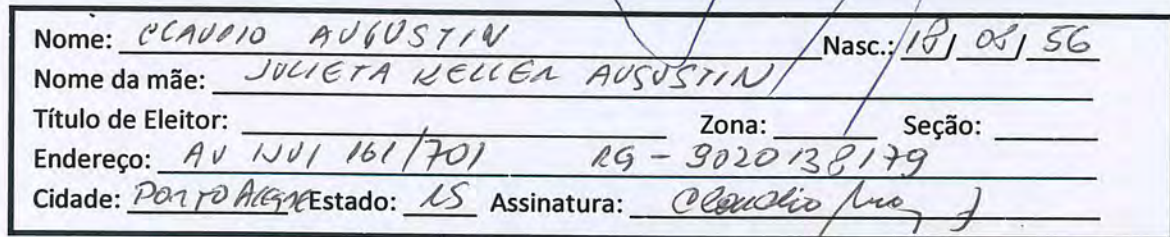 Nome: CLAUDIO AUGUSTIN Nasc.: 18/ 08/ 56
Nome da mãe: JULIETA KELLER AUGUSTIN
Título de Eleitor: Zona: Seção:
Endereço: AV IJUI 161/701 RG - 9020138179
Cidade: PORTO ALEGRE Estado: RS Assinatura: Claudio